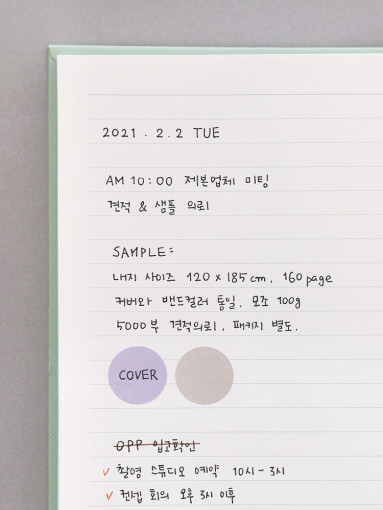 2021 . 2 . 2 TUE
AM 10 : 00 제본업체 미팅
견적 & 샘플 의뢰
SAMPLE :
내지 사이즈 120 x 185 cm, 160 page
커버와 밴드컬러 통일, 모조 100g
5000부 견적의뢰, 패키지 별도.
COVER
OPP 입고확인
✓ 촬영 스튜디오 예약 10시 - 3시
✓ 컨셉 회의 오후 3시 이후